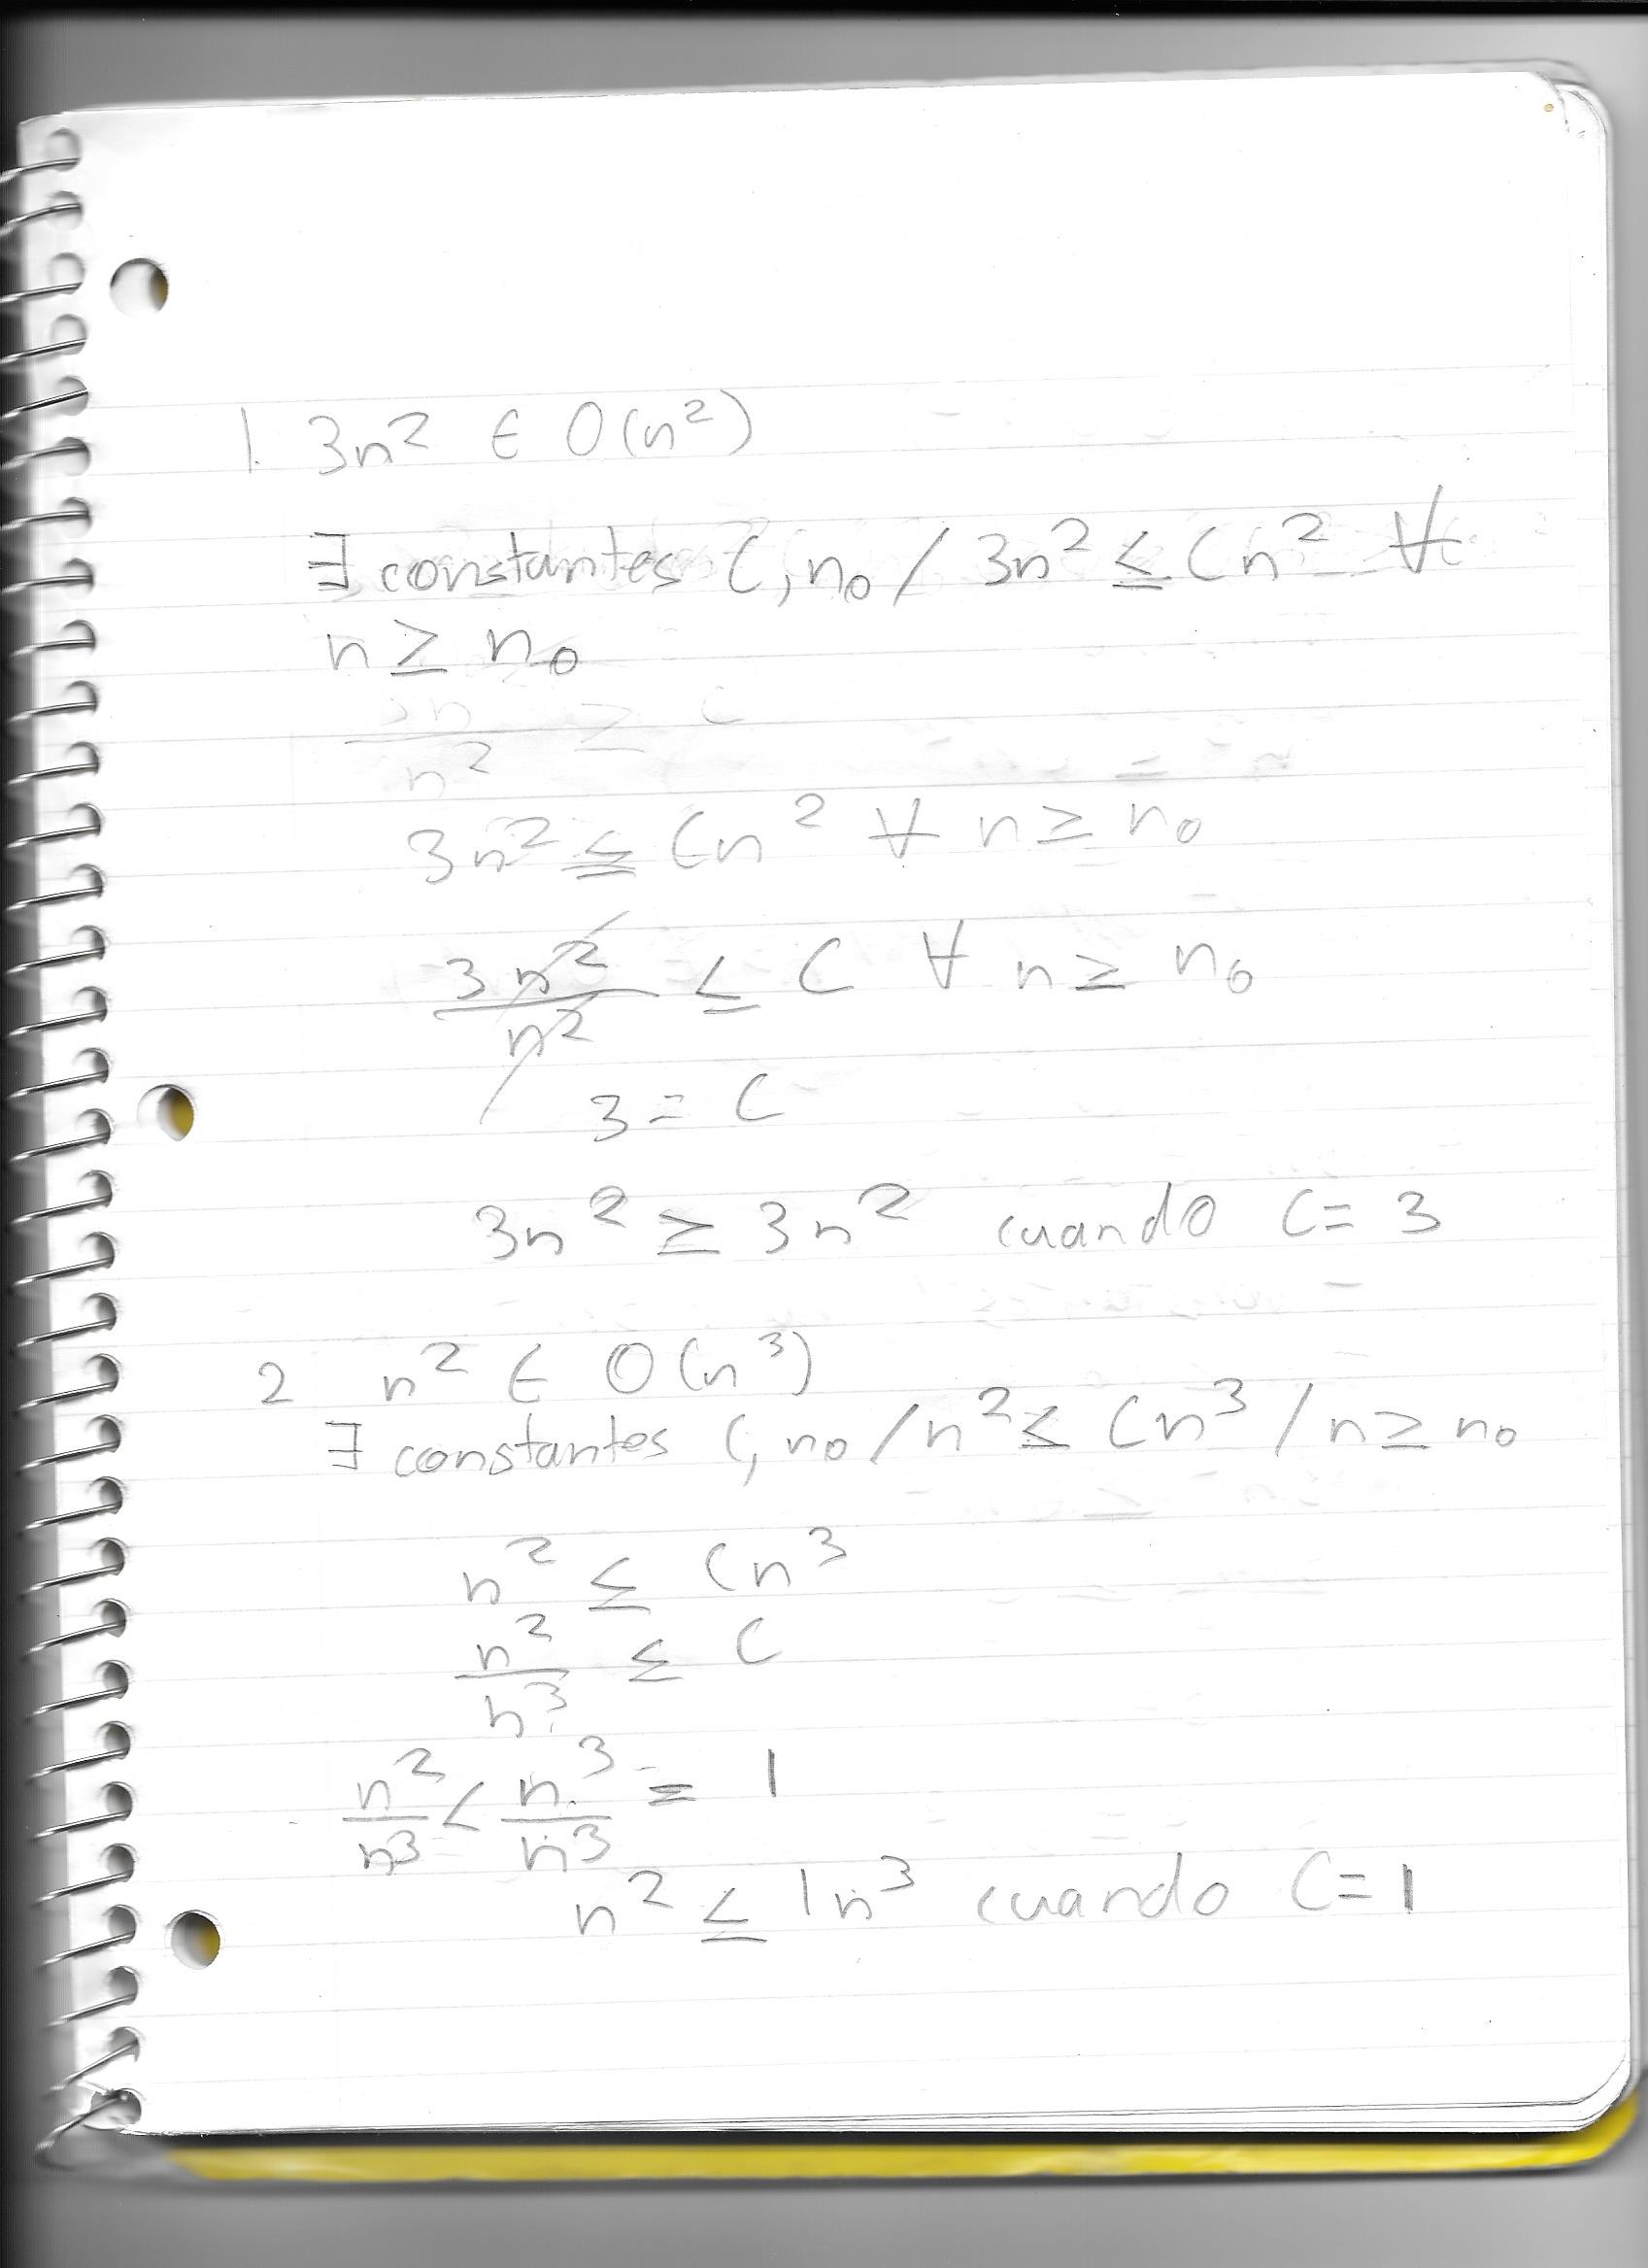 1. 3n² ∈ O(n²)
∃ constantes C, n₀ / 3n² ≤ Cn² ∀
n ≥ n₀
3n² ≤ Cn² ∀ n ≥ n₀
3n²/n² ≤ C ∀ n ≥ n₀
3 = C
3n² ≥ 3n² cuando C = 3
2 n² ∈ O(n³)
∃ constantes C, n₀ / n² ≤ Cn³ / n ≥ n₀
n² ≤ Cn³
n²/n³ ≤ C
n²/n³ < n³/n³ = 1
n² ≤ 1n³ cuando C = 1